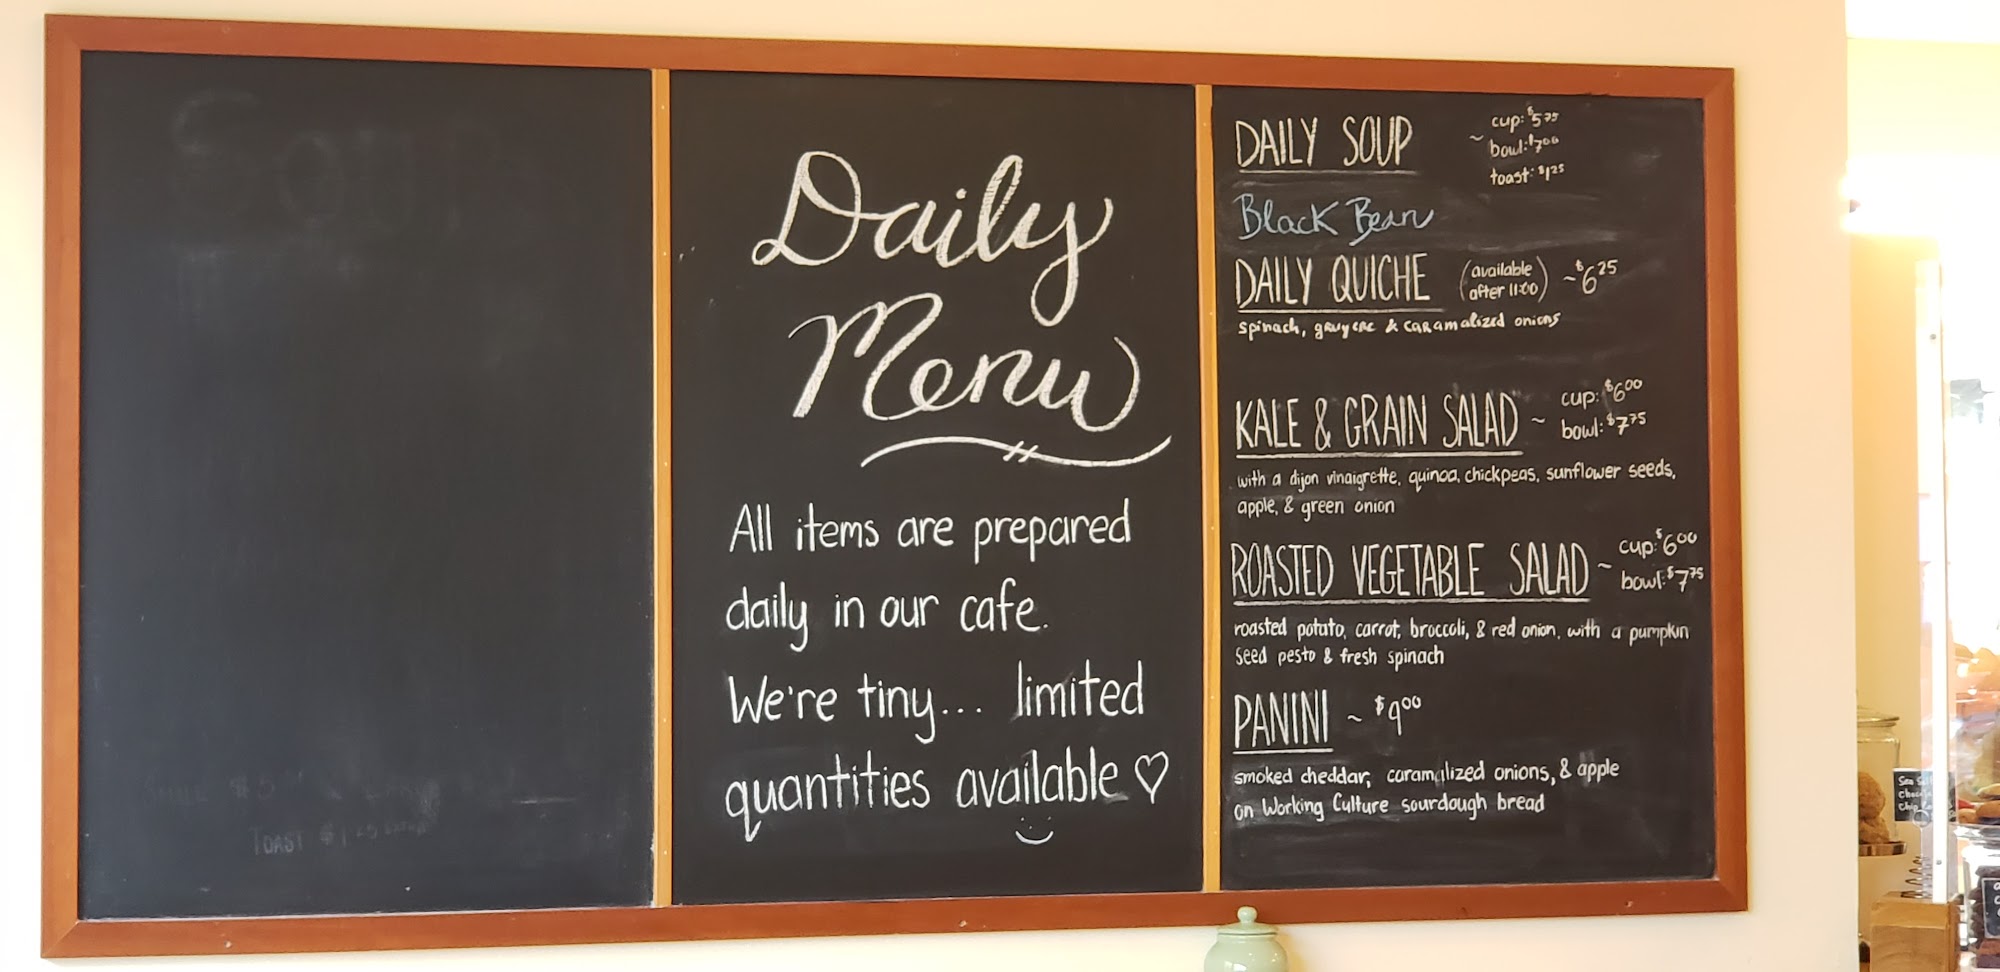 Soup
TOAST $1.25
Daily
Menu
All items are prepared
daily in our cafe.
We're tiny... limited
quantities available ♡
DAILY SOUP ~ cup: $5.75
bowl: $7.00
toast: $1.25
Black Bean
DAILY QUICHE (available after 11:00) ~ $6.25
spinach, gruyere & caramalized onions
KALE & GRAIN SALAD ~ cup: $6.00
bowl: $7.75
with a dijon vinaigrette, quinoa, chickpeas, sunflower seeds,
apple, & green onion
ROASTED VEGETABLE SALAD ~ cup: $6.00
bowl: $7.75
roasted potato, carrot, broccoli, & red onion, with a pumpkin
seed pesto & fresh spinach
PANINI ~ $9.00
smoked cheddar, caramalized onions, & apple
on Working Culture sourdough bread
Sea Salt
Chip